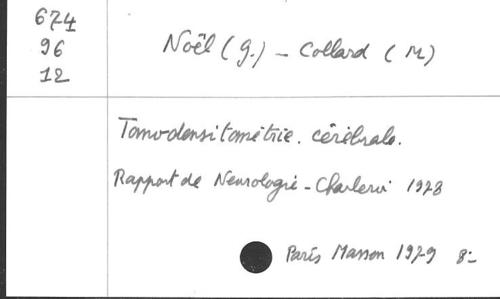 674
96
12
Noël (G.) - Collard (M)
Tomodensitométrie. cérébrale.
Rapport de Neurologie - Charleroi 1978
Paris Masson 1979 8=